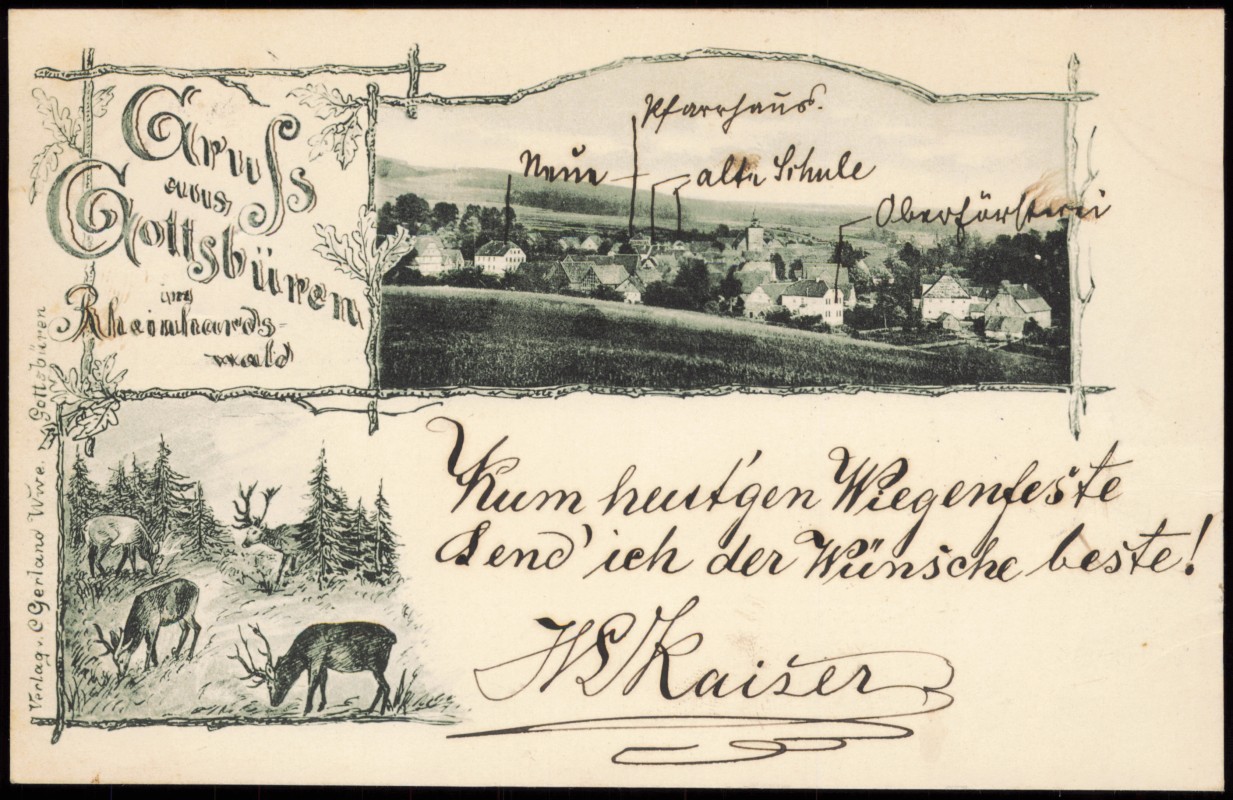 Gruss
aus
Gottsbüren
im
Rheinhards-
wald
Pfarrhaus.
Neue — alte Schule
Oberförsterei
Zum heut'gen Wiegenfeste
Send' ich der Wünsche beste!
Kaiser
Verlag v. C. Gerland Wwe. Gottsbüren